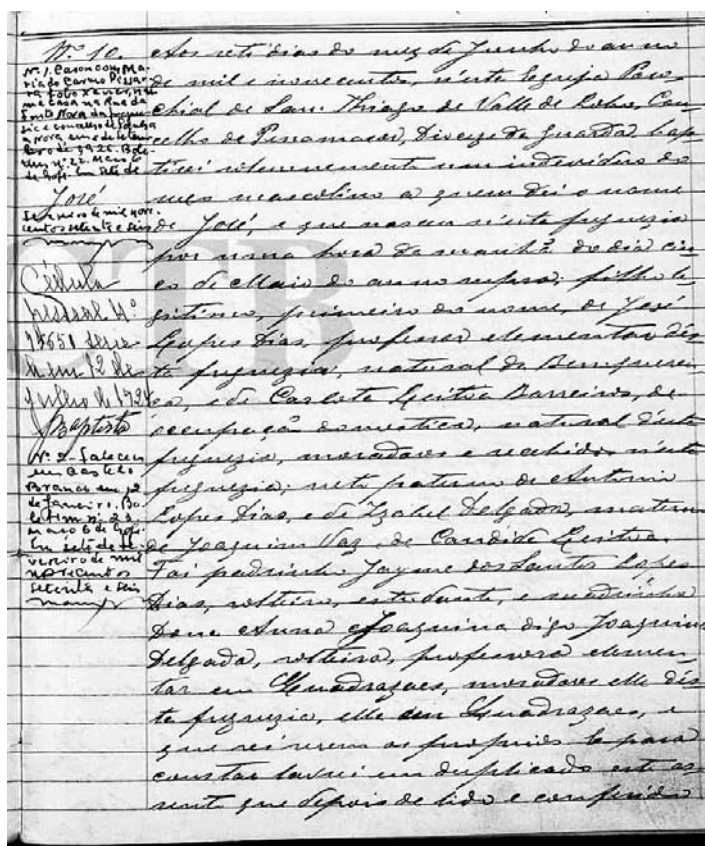 Nº 10.
Nº 1. Casou com Ma-
ria do Carmo
de 1926. Bole-
tim nº 22. Maço 6
José
Cédula
pessoal nº
em 12 de
Julho de 1928
Baptista
Nº 2. Faleceu
em Castelo
Branco em 12
de Janeiro. Bo-
letim nº 22
maço 6 de hoje.
Em sete de Fe-
vereiro de mil
novecentos
setenta e seis
Aos sete dias do mez de Junho do anno
de mil e novecentos, n'esta Egreja Paro-
chial de San Thiago de Valle de Lobo, Con-
celho de Penamacor, Diocese da Guarda, bap-
tisei solemnemente um individuo do
sexo masculino a quem dei o nome
de José, e que nasceu n'esta freguezia
por uma hora da manhã do dia cin-
co de Maio do anno supra; filho le-
gitimo, primeiro do nome, de José
Lopes Dias, professor elementar d'es-
ta freguezia, natural de Bemqueren-
ça, e de Carlota Leitôa Barreiros, de
occupação domestica, natural d'esta
freguezia, moradores e recebidos n'esta
freguezia; neto paterno de Antonio
Lopes Dias, e de Izabel Delgada, materno
de Joaquim Vaz e de Candida Leitôa.
Foi padrinho Jayme dos Santos Lopes
Dias, solteiro, estudante, e madrinha
Dona Anna Joaquina digo Joaquina
Delgada, solteira, professora elemen-
tar em Quadrazaes, moradores elle d'es-
ta freguezia, ella em Quadrazaes, e
que sei serem os proprios. E para
constar lavrei em duplicado este as-
sento que depois de lido e conferido
CTB